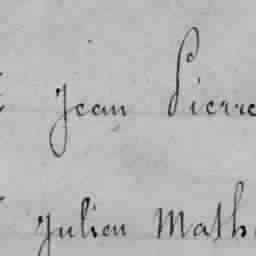 Jean Pierre
Julien Math